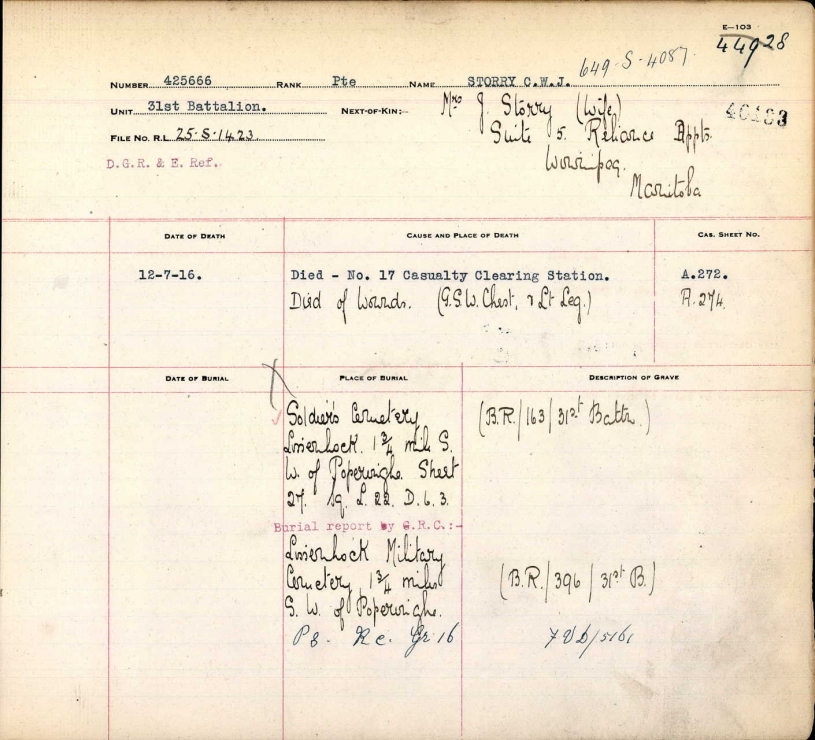 E—103
44928
649-S-4087.
NUMBER 425666 RANK Pte NAME STORRY C.W.J.
UNIT 31st Battalion. NEXT-OF-KIN:— Mrs J. Storry (Wife)
46183
Suite 5. Reliance Appts.
FILE NO. R.L. 25-S-1423.
Winnipeg.
D.G.R. & E. Ref.
Manitoba
DATE OF DEATH CAUSE AND PLACE OF DEATH CAS. SHEET NO.
12-7-16. Died - No. 17 Casualty Clearing Station. A.272.
Died of Wounds. (G.S.W. Chest, & Lt Leg.) A.274.
DATE OF BURIAL PLACE OF BURIAL DESCRIPTION OF GRAVE
Soldiers Cemetery (B.R./163/31st Battn.)
Lissenhock. 1 3/4 mile S.
W. of Poperinghe. Sheet
27. Sq. L. 22. D. 6. 3.
Burial report by G.R.C.:-
Lissenhock Military
Cemetery, 1 3/4 miles (B.R./396/31st B.)
S. W. of Poperinghe.
P8. R c. Gr 16